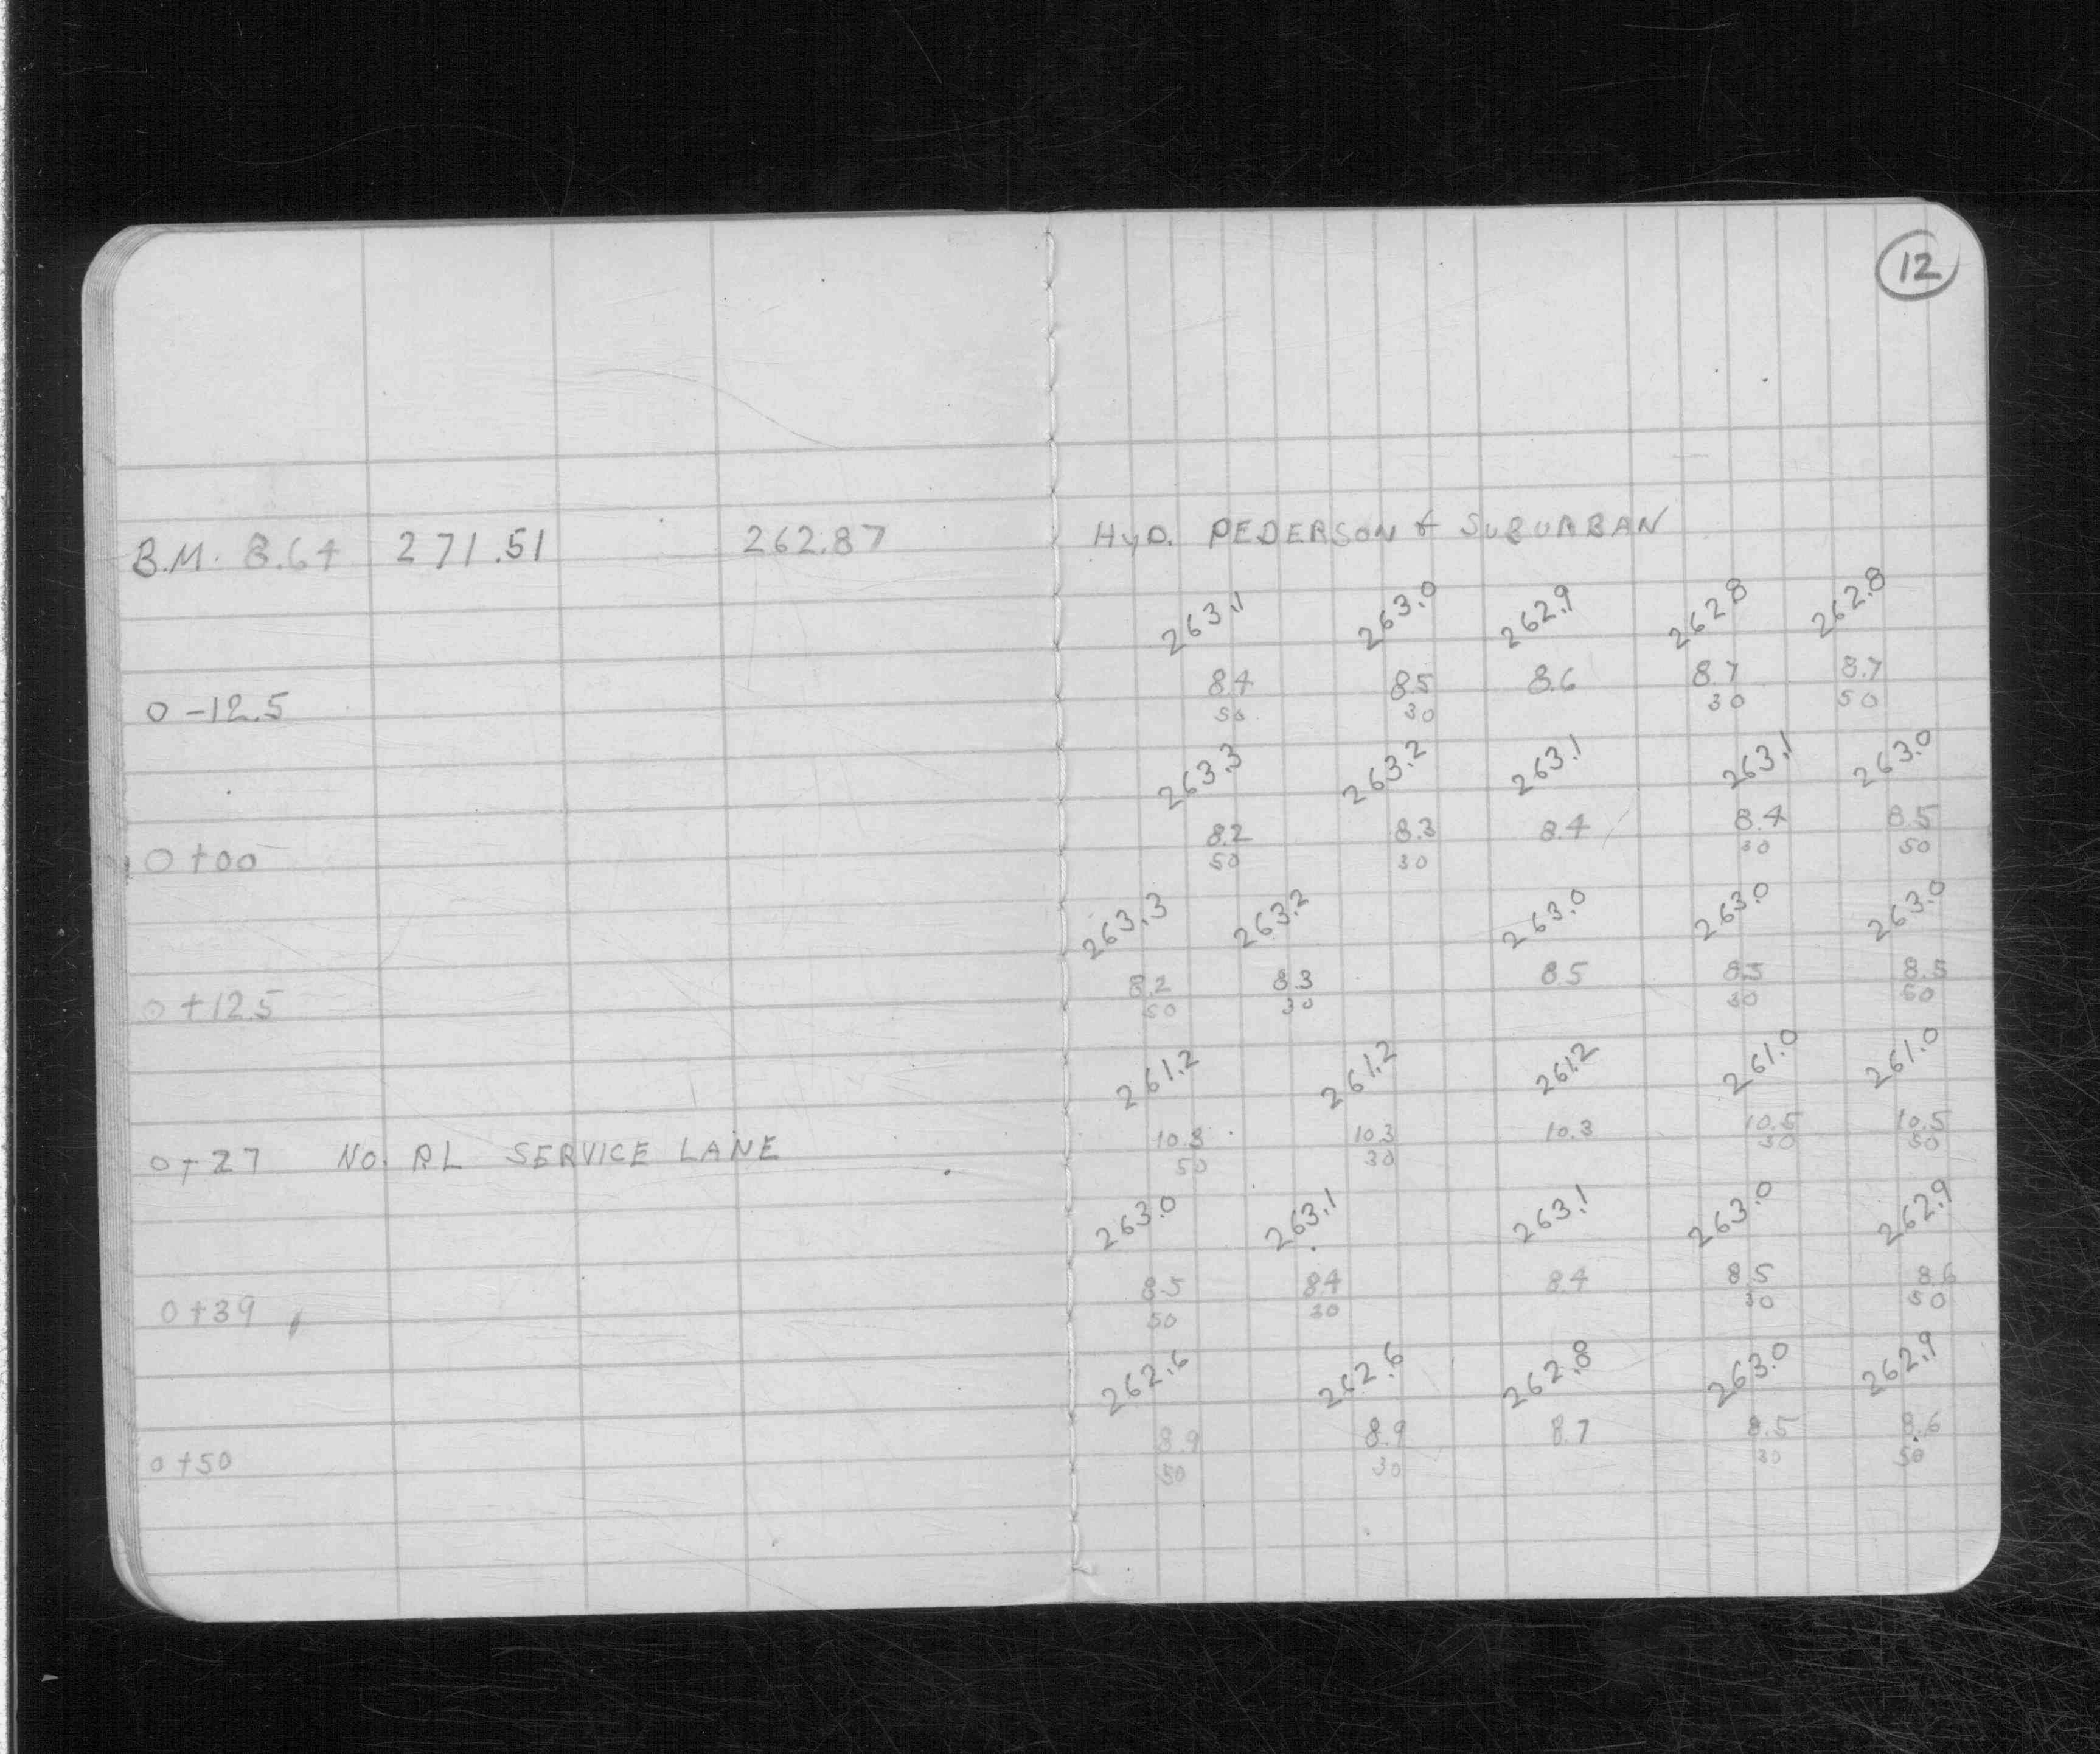 12
B.M. 8.64 271.51 262.87 HYD. PEDERSON & SUBURBAN
263.1 263.0 262.9 262.8 262.8
0-12.5 8.4 8.5 8.6 8.7 8.7
50 30 30 50
263.3 263.2 263.1 263.1 263.0
0+00 8.2 8.3 8.4 8.4 8.5
50 30 30 50
263.3 263.2 263.0 263.0 263.0
0+12.5 8.2 8.3 8.5 8.5 8.5
50 30 30 50
261.2 261.2 261.2 261.0 261.0
0+27 NO. RL SERVICE LANE 10.3 10.3 10.3 10.5 10.5
50 30 30 50
263.0 263.1 263.1 263.0 262.9
0+39 8.5 8.4 8.4 8.5 8.6
50 30 30 50
262.6 262.6 262.8 263.0 262.9
0+50 8.9 8.9 8.7 8.5 8.6
50 30 30 50